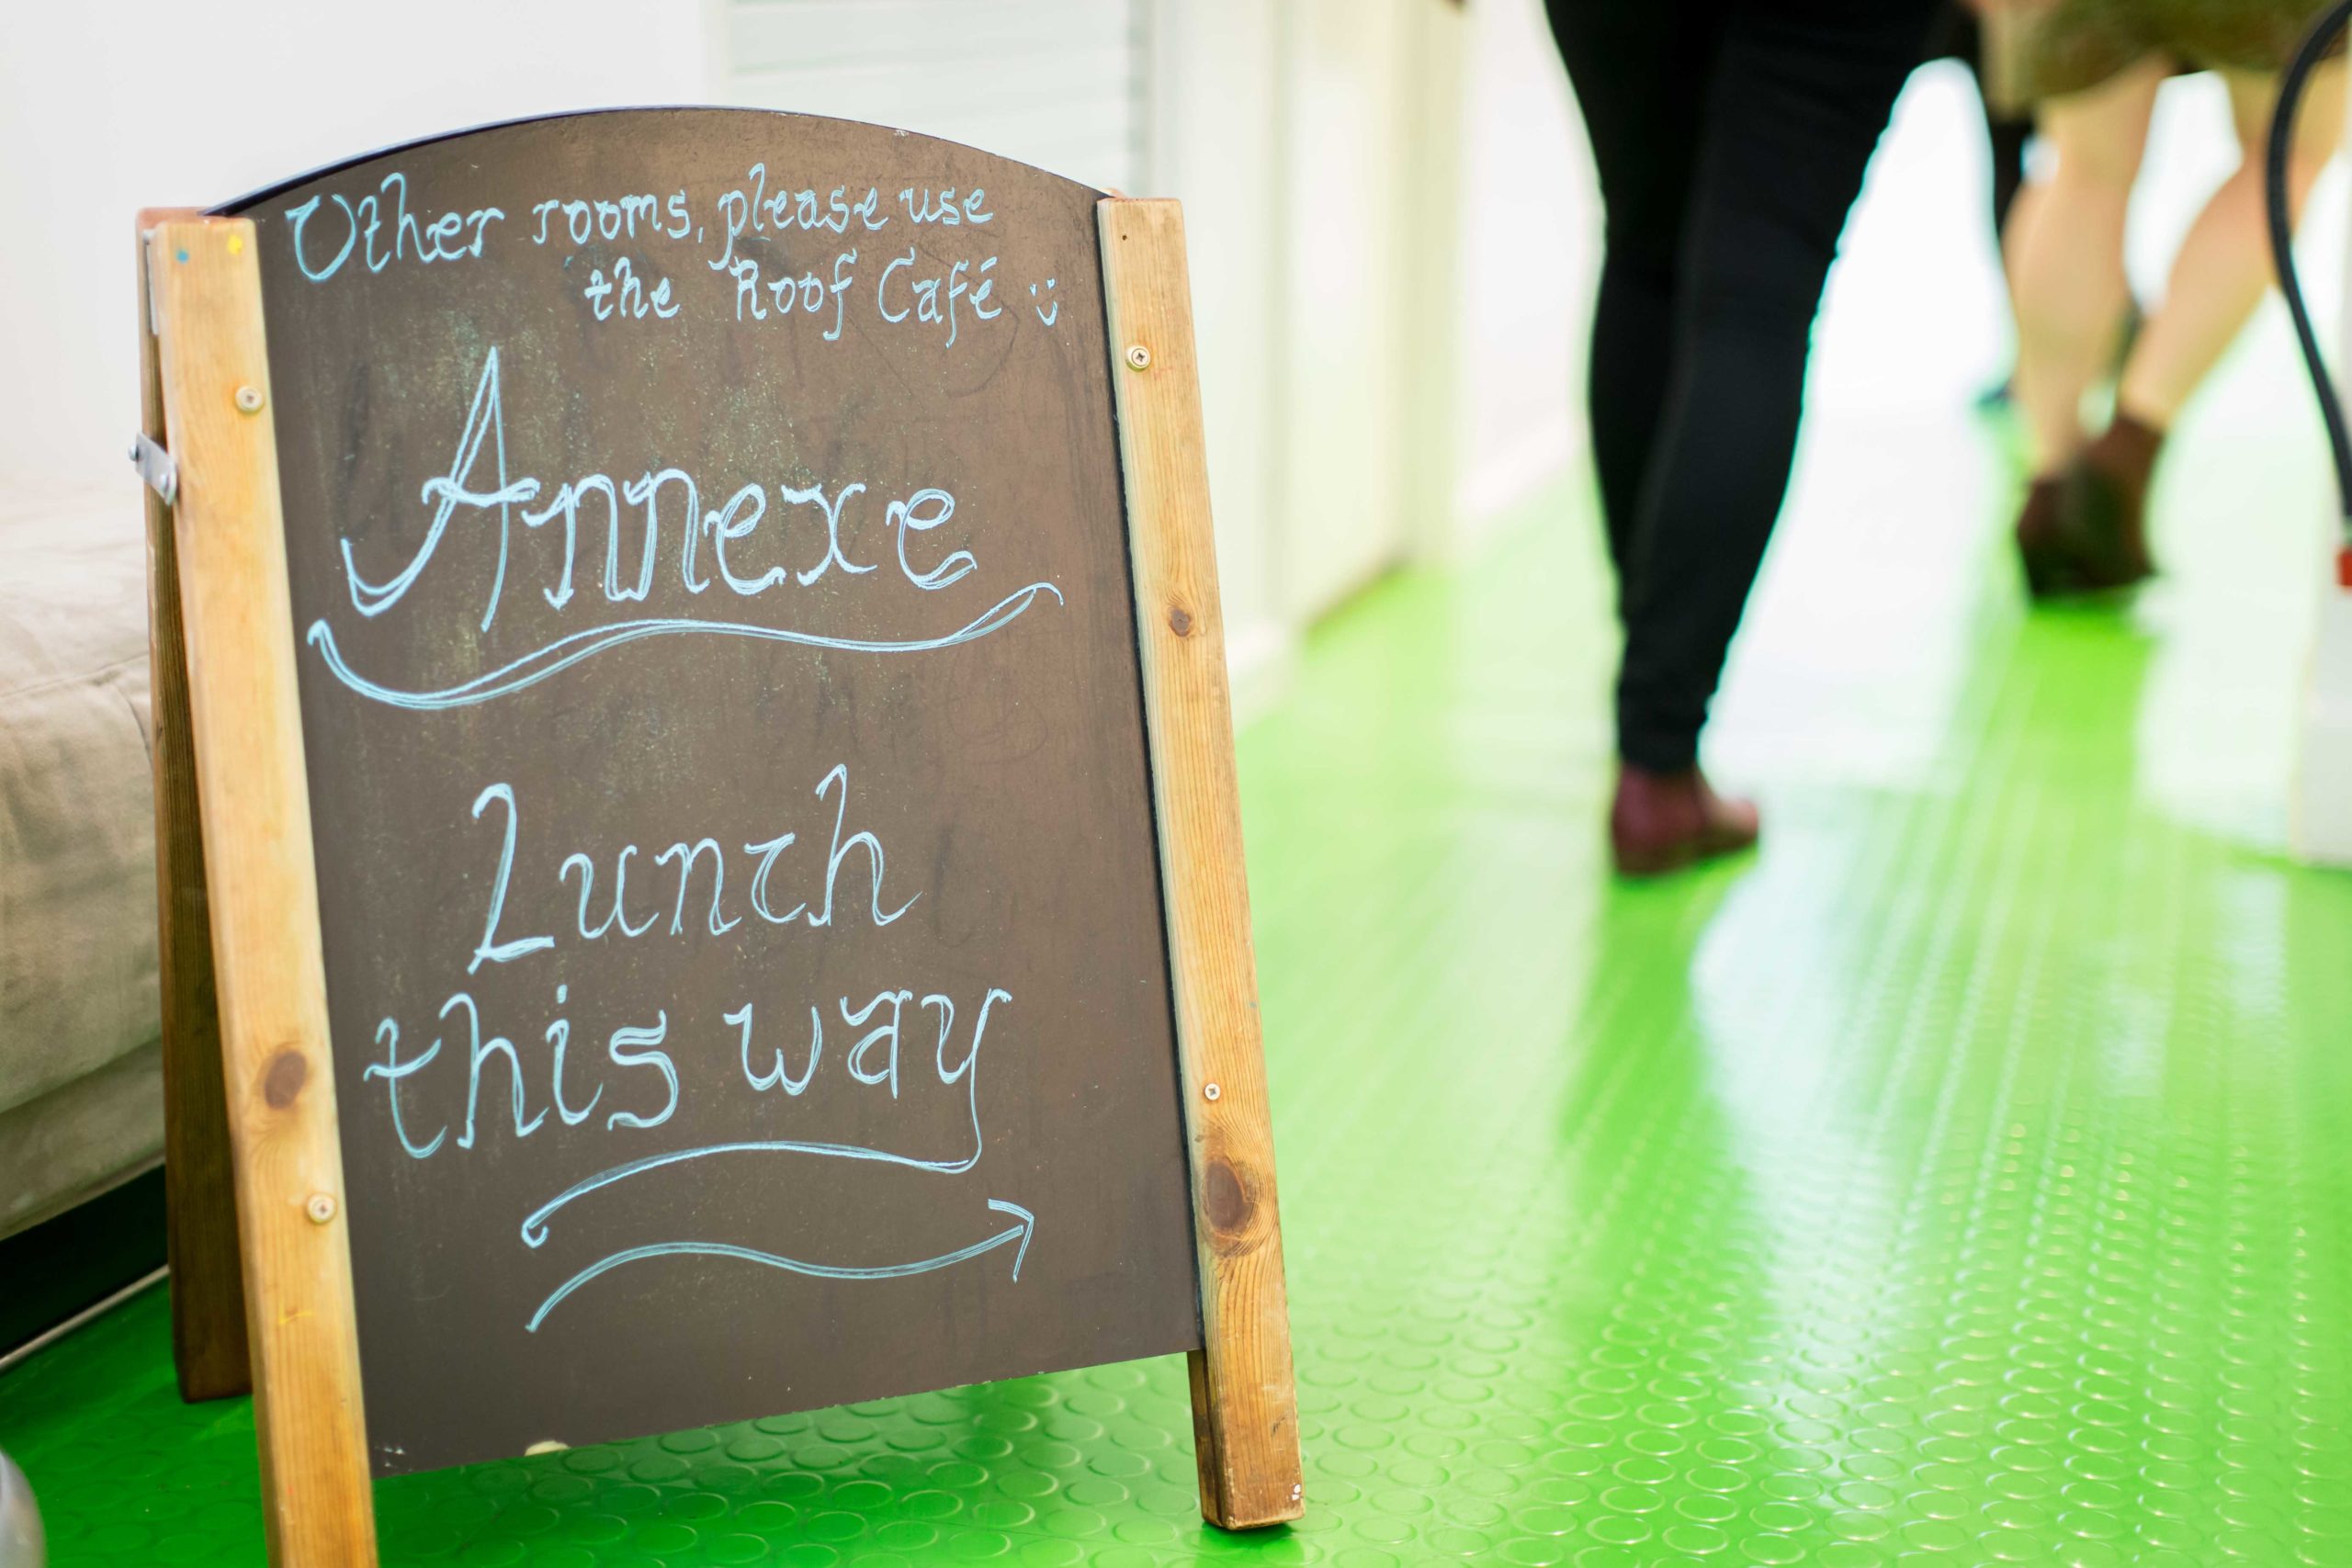 Other rooms, please use
the Roof Café :)
Annexe
Lunch
this way